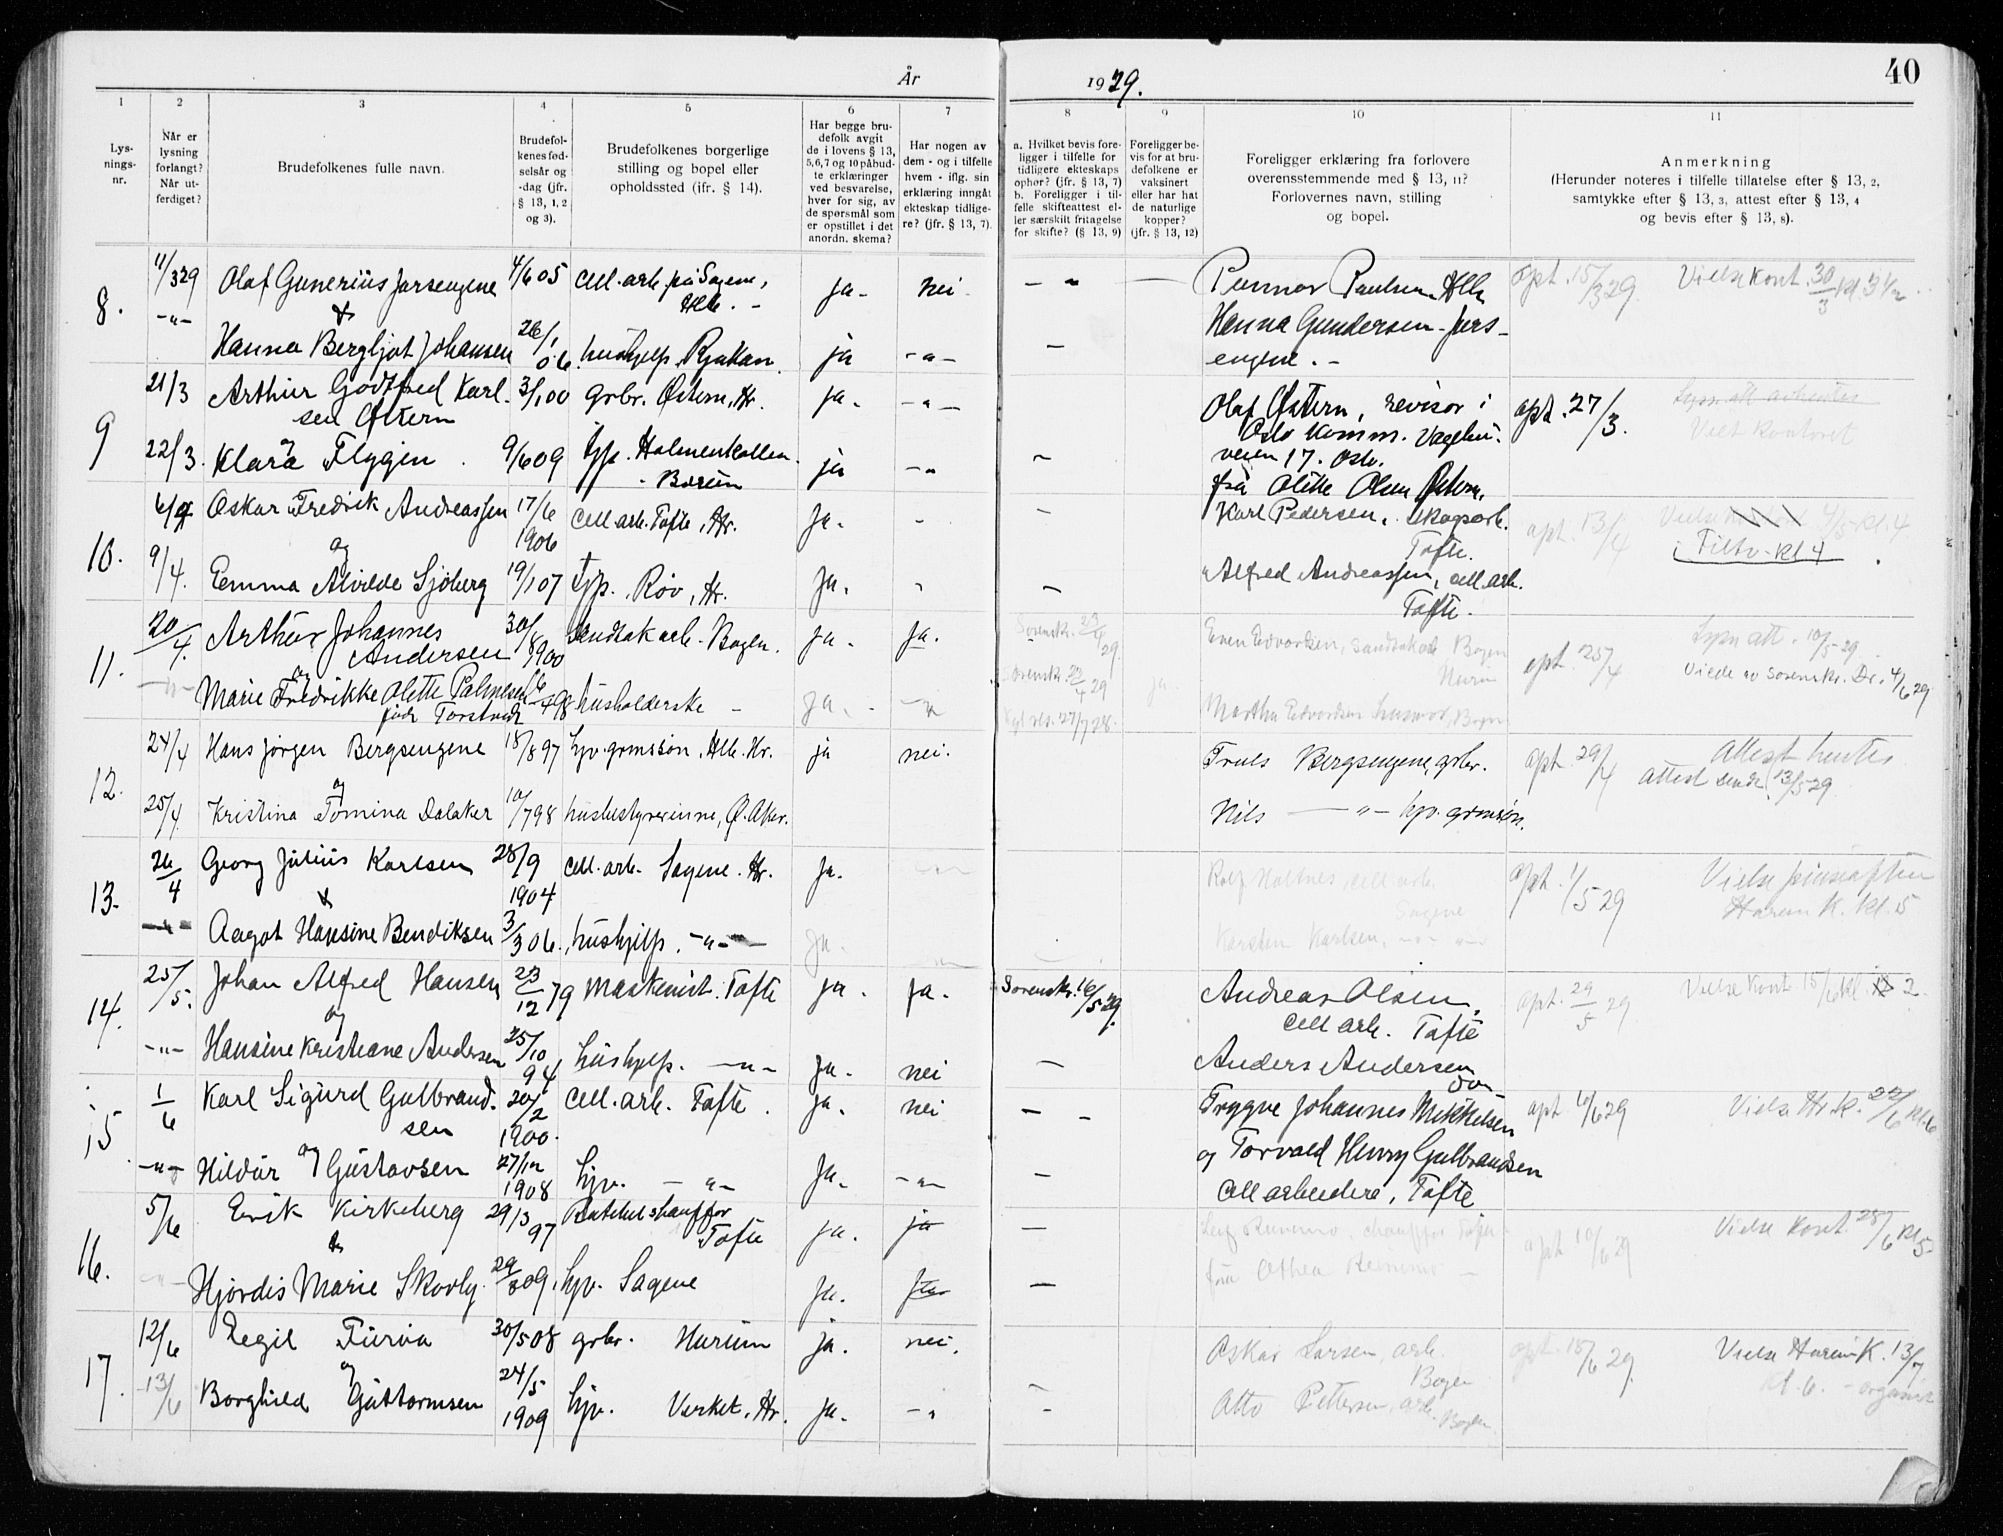 År 1929.
40
1 2 3 4 5 6 7 8 9 10 11
Lys-
nings-
nr.
Når er
lysning
forlangt?
Når ut-
ferdiget?
Brudefolkenes fulle navn.
Brudefol-
kenes fød-
selsår og
-dag (jfr.
§ 13, 1, 2
og 3).
Brudefolkenes borgerlige
stilling og bopel eller
opholdssted (ifr. § 14).
Har begge bru-
defolk avgit
de i lovens § 13,
5,6,7 og 10 påbud-
te erklæringer
ved besvarelse,
hver for sig, av
de spørsmål som
er opstillet i det
anordn. skema?
Har nogen av
dem - og i tilfelle
hvem - iflg. sin
erklæring inngåt
ekteskap tidlige-
re? (jfr. § 13, 7).
a. Hvilket bevis fore-
ligger i tilfelle for
tidligere ekteskaps
ophør? (jfr. § 13, 7)
b. Foreligger i til-
felle skifteattest el-
ler særskilt fritagelse
for skifte? (§ 13, 9)
Foreligger be-
vis for at bru-
defolkene er
vaksinert
eller har hat
de naturlige
kopper?
(jfr. § 13, 12)
Foreligger erklæring fra forlovere
overensstemmende med § 13, 11?
Forlovernes navn, stilling
og bopel.
Anmerkning
(Herunder noteres i tilfelle tillatelse efter § 13, 2,
samtykke efter § 13, 3, attest efter § 13, 4
og bevis efter § 13, 8).
8. 11/3 29 Olaf Gunerius Jarsengene 4/6 05 Cell. arb. på Sagene, Hlb. - ja - nei - " - Paulsen Hlb. opt. 15/3 29. Vielse Kont. 30/3
-"- & Hanna Bergljot Johansen 26/1 06. hushjelp Rjukan. ja -"- - Hanna Gundersen Jars-
engene. -
9 21/3 Arthur Godtfred Karl- 3/1 00 grbr. Østern, Hr. ja. -"- Olaf Østern, revisor i opt. 27/3.
sen Østern Oslo Komm.
22/3. og Klara Flygin. 9/6 09 tjp. Holmenkollen. ja -" - veien 17. Oslo.
Bærum fru Olette Olsen Østern.
10. 6/4 Oskar Fredrik Andreassen 17/6 1906 Cell arb. Tofte, Hr. Ja. - - Karl Pedersen, skogsarb. Tofte. opt. 13/4 4/5 kl. 4
i Filtv. kl 4
9/4. og Emma Alvilde Sjöberg 19/1 07 tjp. Röv, Hr. Ja. " - Alfred Andreassen, cell arb.
Tofte.
11. 20/4. Arthur Johannes Andersen 30/8 1900 sandtak arb. Bogen. Ja. Ja. Sorenskr. 23/4 29. Even Edvardsen, sandtakarb Bogen opt. 25/4 Lysn att. 10/5 29.
-"- og Marie Fredrikke Olette Palmesen hüsholderske - Ja. -"- Sorenskr. 23/4 29 ja. Viede av Sorenskr. Dr. 4/6 29
født Kgl. res. 27/7 28. Martha Edvardsen husmor, Bogen
12. 24/4 Hans Jörgen Bergsengene 18/8 97 hjv. grmssøn, Hlb. Hr. ja nei. Truls Bergsengene, grbr. opt. 29/4 Attest hentes
attest sendt 13/5 29.
25/4. og Kristina Tomina Dalaker 10/7 98 husbestyrerinne, Ø. Aker. Nils -"- hjv. grmsøn.
13. 26/4 Georg Julius Karlsen 28/9 1904 Cell. arb. Sagene. Hr. Ja. -"- Rolf Holtnes, cell arb. opt. 1/5 29 Vielse pinseaften
Sagene Hurum K. kl. 5
-"- & Aagot Hansine Bendiksen 3/3 06. hüshjelp. -"- Ja. -"- Karsten Karlsen, -"- -"-
14. 25/5. Johan Alfred Hansen 23/12 79 Maskinist. Tofte ja. ja. Sorenskr. 16/5 29. Andreas Olsen, opt. 29/5 29 Vielse Kont. 15/6 kl. 2.
Cell arb. Tofte
-"- og Hansine Kristiane Andersen 25/10 94 hüshjelp. -"- Ja. nei - Anders Andersen
do
15 1/6 Karl Sigurd Gulbrand- 20/2 1900. Cell. arb. Tofte. ja. nei - - Trygve Johannes Mikkelsen opt. 10/6 29 Vielse Hr. K. 22/6 kl. 6
sen og Torvald Henry Gulbrandsen
-"- og Hildur Gustavsen 27/12 1908 hjv. -"- Ja. -"- - Cell arbeidere, Tofte
16. 5/6 Erik Kirkeberg 29/3 97 Rutebilshauffør Tofte ja. ja - opt 10/6 29 Vielse Kont. 28/6 kl 5
-"- & Hjördis Marie Skovly. 29/8 09. hjv. Sagene Ja. ja - fru Othea
17. 12/6 Eegil Furua 30/5 08 grbr. Hurum ja. nei. Oskar Larsen, arb. Bogen opt. 18/6 29. Vielse Hurum K. 13/7
kl. 6. - organist
13/6 og Borghild Guttormsen 24/5 1909 hjv. Verket, Hr. Ja. -" - Otto Pettersen, arb. Bogen